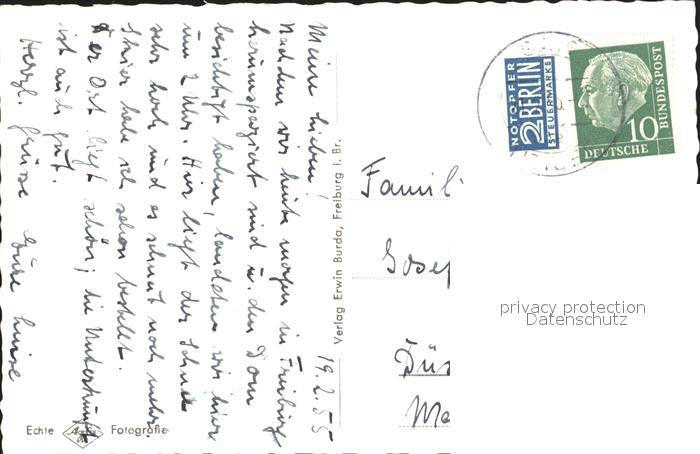 19.2.55
Meine Lieben!
Nachdem wir heute morgen in Freiburg
herumspaziert sind u. den Dom
besichtigt haben, landeten wir hier
um 2 Uhr. Hier liegt der Schnee
sehr hoch und es schneit noch mehr.
habe ich schon bestellt.
Der Ort liegt schön; die Unterkunft
ist auch gut.
Herzl. Grüsse Eure Luise
Verlag Erwin Burda, Freiburg i. Br.
Echte Agfa Fotografie
NOTOPFER
2 BERLIN
STEUERMARKE
10
DEUTSCHE
BUNDESPOST
Famili
Josef
Düs
privacy protection
Datenschutz